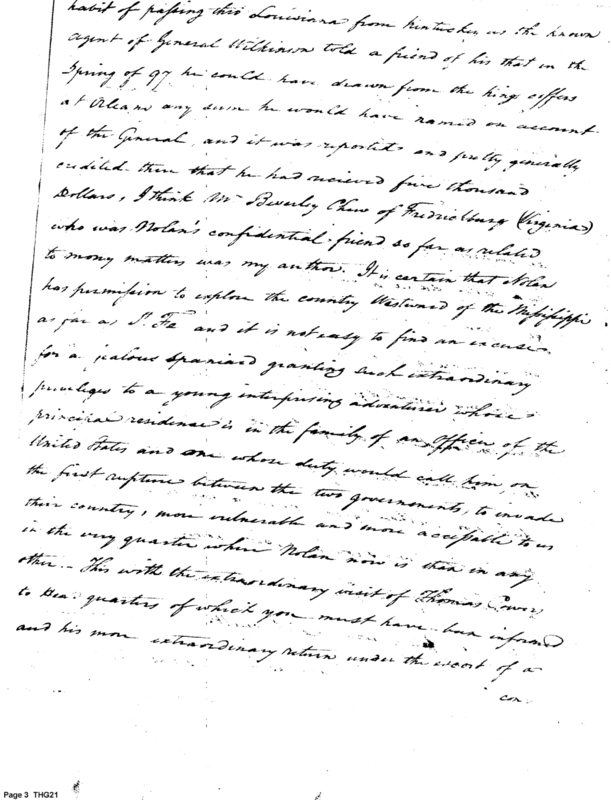 habit of passing thro Louisiana from Kentuckey as the known
agent of General Wilkinson told a friend of his that in the
Spring of 97 he could have drawn from the kings coffers
at Orleans any sum he would have named on account
of the General, and it was reported and pretty generally
credited there that he had recieved five thousand
Dollars, I think Mr Beverley Chew of Fredricsburg (Virginia)
who was Nolan's confidential friend so far as related
to money matters was my author. It is certain that Nolan
has permission to explore the country Westward of the Missisippi
as far as St Fe and it is not easy to find an excuse
for a jealous Spaniard granting such extraordinary
privileges to a young interprising adventurer whose
principal residence is in the family of an officer of the
United States and one whose duty would call him, on
the first rupture between the two governments, to invade
their country, more vulnerable and more accessable to us
in the very quarter where Nolan now is than in any
other - This with the extraordinary visit of Thomas Power
to Head quarters of which you must have been informed
and his more extraordinary return under the escort of a
con-
Page 3 THG21